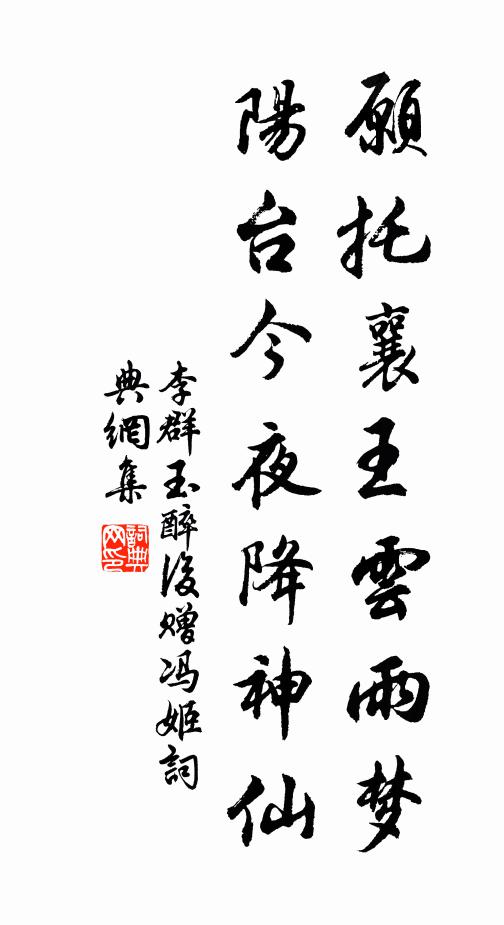 願托襄王雲雨梦
陽台今夜降神仙
李群玉醉後赠冯姬詞
典網集
詞典网印